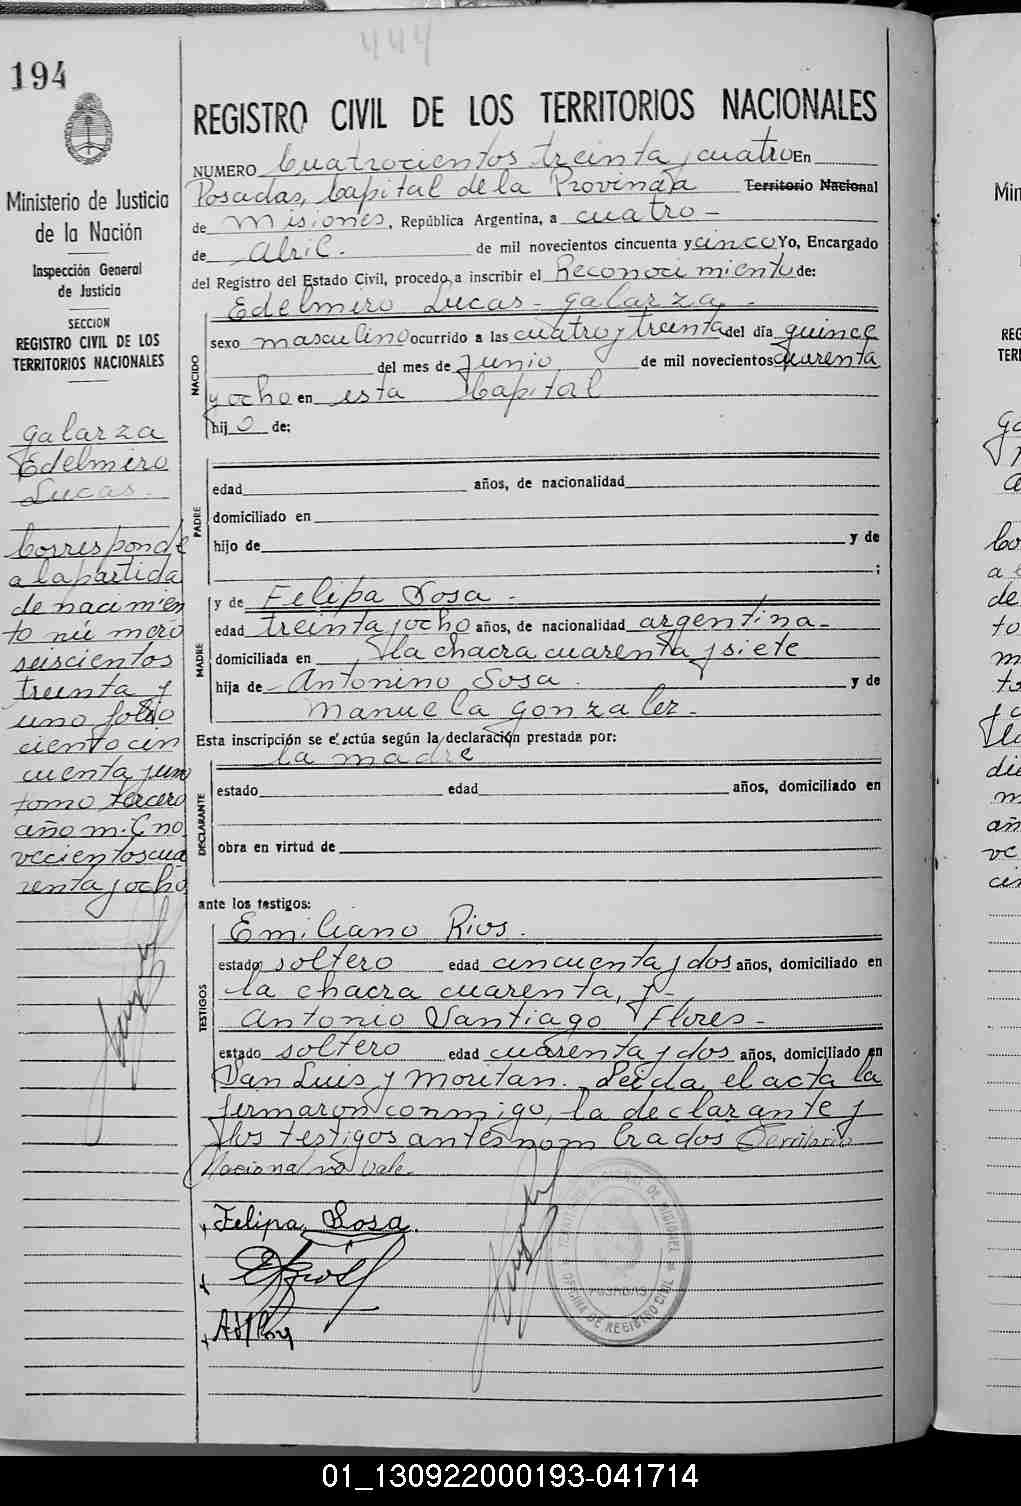 444
194
Ministerio de Justicia
de la Nación
Inspección General
de Justicia
SECCION
REGISTRO CIVIL DE LOS
TERRITORIOS NACIONALES
Galarza
Edelmiro
Lucas.
Corresponde
a la partida
de nacimien
to número
seiscientos
treinta y
uno folio
ciento cin
cuenta y un
tomo tercero
año m. C no
vecientos cua
renta y ocho
REGISTRO CIVIL DE LOS TERRITORIOS NACIONALES
NUMERO Cuatrocientos treinta y cuatro En
Posadas, Capital de la Provincia Territorio Nacional
de Misiones, República Argentina, a cuatro -
de Abril. de mil novecientos cincuenta y cinco Yo, Encargado
del Registro del Estado Civil, procedo a inscribir el Reconocimiento de:
Edelmiro Lucas - Galarza -
NACIDO
sexo masculino ocurrido a las cuatro y treinta del día quince
del mes de Junio de mil novecientos cuarenta
y ocho en esta Capital
hijo de:
PADRE
edad años, de nacionalidad
domiciliado en
hijo de y de
;
MADRE
y de Felipa Sosa -
edad treinta y ocho años, de nacionalidad argentina -
domiciliada en la chacra cuarenta y siete
hija de Antonino Sosa. y de
Manuela Gonzalez -
Esta inscripción se efectúa según la declaración prestada por:
la madre
DECLARANTE
estado edad años, domiciliado en
obra en virtud de
ante los testigos:
TESTIGOS
Emiliano Rios.
estado soltero edad cincuenta y dos años, domiciliado en
la chacra cuarenta, y -
Antonio Santiago Flores -
estado soltero edad cuarenta y dos años, domiciliado en
San Luis y Moritan. Leida el acta la
firmaron conmigo, la declarante y
los testigos antes nombrados Territorio
Nacional no vale.
Felipa Sosa.
OFICINA DE REGISTRO CIVIL
POSADAS
01_130922000193-041714